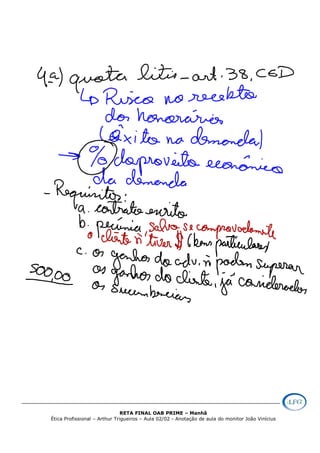 4a) quota litis - art. 38, CED
↳ Risco no recebto
dos honorários
(êxito na demanda)
→ % do proveito econômico
da demanda
- Requisitos:
a. contrato escrito
b. pecúnia, salvo se comprovadamente
o cliente ñ tiver $ (bens particulares)
c. os ganhos do adv. ñ podem superar
500,00 os ganhos do cliente, já considerados
os sucumbenciais
LFG
RETA FINAL OAB PRIME – Manhã
Ética Profissional – Arthur Trigueiros – Aula 02/02 - Anotação de aula do monitor João Vinícius